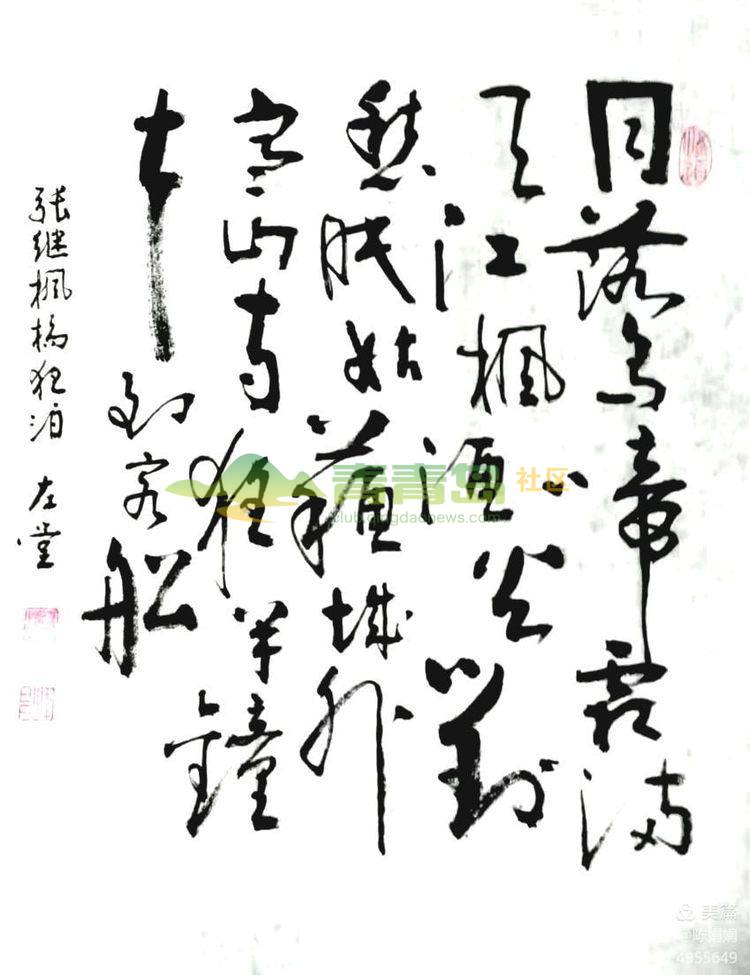 月落烏啼霜满
天江楓渔火對
愁眠姑蘇城外
寒山寺夜半鐘
声到客船
张继楓橋夜泊 左堂
青青岛社区
club.qingdaonews.com
美篇
4955649